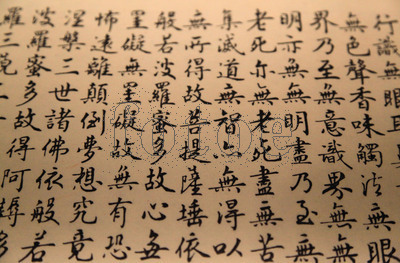 行識無眼耳
無色聲香味觸法無眼
界乃至無意識界無無
明亦無無明盡乃至無
老死亦無老死盡無苦
集滅道無智亦無得以
無所得故菩提薩埵依
般若波羅蜜多故心無
罣礙無罣礙故無有恐
怖遠離顛倒夢想究竟
涅槃三世諸佛依般若
波羅蜜多故得阿耨多
羅三藐三
fotoe